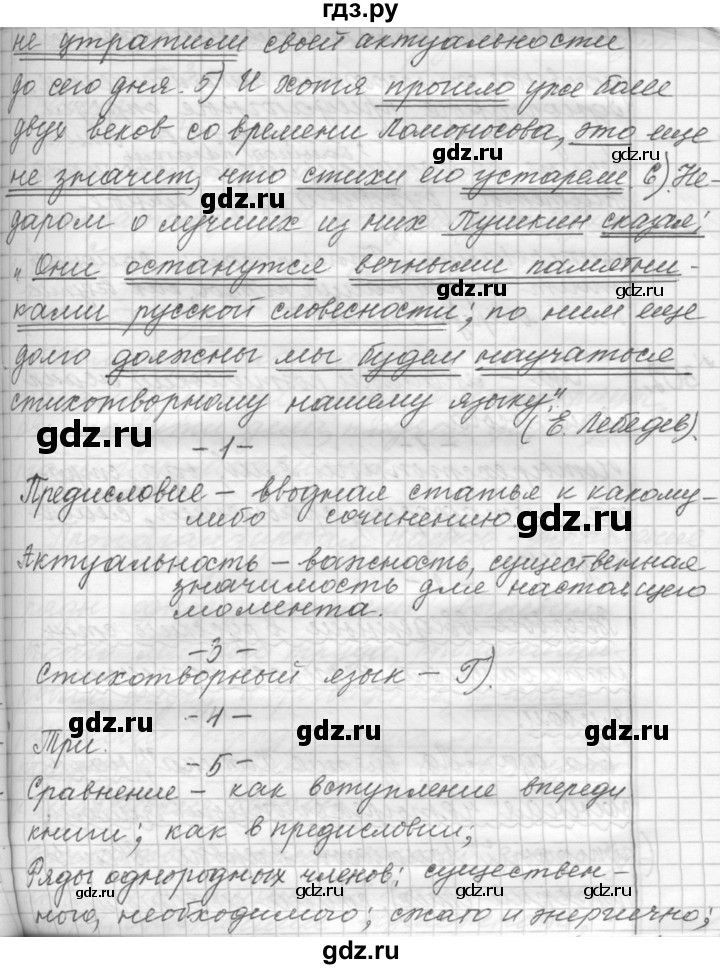 гдз.ру
не утратили своей актуальности
до сего дня. 5) И хотя прошло уже более
двух веков со времени Ломоносова, это еще
gdz.ru gdz.ru
не значит, что стихи его устарели. 6) Не-
gdz.ru gdz.ru
даром о лучших из них Пушкин сказал:
„Они останутся вечными памятни-
gdz.ru gdz.ru
ками русской словесности; по ним еще
долго должны мы будем научаться
стихотворному нашему языку".
(Е. Лебедев).
gdz.ru
-1-
Предисловие – вводная статья к какому-
либо сочинению
gdz.ru
Актуальность – важность, существенная
значимость для настоящего
момента.
-3-
Стихотворный язык – Г).
gdz.ru gdz.ru gdz.ru
-4-
Три.
-5-
Сравнение – как вступление впереди
книги; как в предисловии;
Ряды однородных членов: существен-
gdz.ru gdz.ru gdz.ru
ного, необходимого; сжато и энергично;
гдз.ру